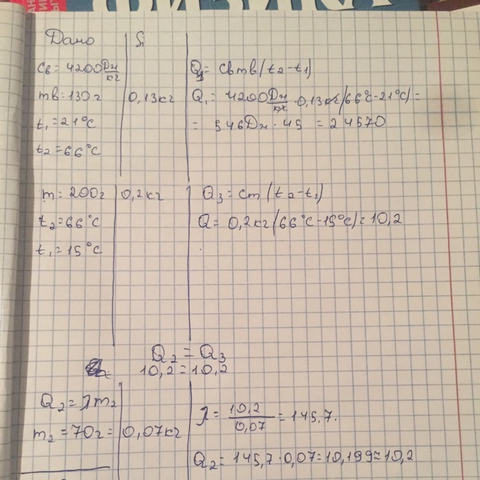 ФИЗИКА
Дано
Si
Cв = 4200 Дж/кг
mв = 130 г
0,13 кг
t₁ = 21°C
t₂ = 66°C
Q₁ = Cвmв(t₂-t₁)
Q₁ = 4200 Дж/кг · 0,13 кг(66°C-21°C) =
= 546 Дж · 45 = 24570
m = 200 г
0,2 кг
t₂ = 66°C
t₁ = 15°C
Q₃ = cm(t₂-t₁)
Q = 0,2 кг(66°C-15°C) = 10,2
Q₂ = Q₃
10,2 = 10,2
Q₂ = λm₂
m₂ = 70 г = 0,07 кг
λ = 10,2/0,07 = 145,7.
Q₂ = 145,7 · 0,07 = 10,199 ≈ 10,2